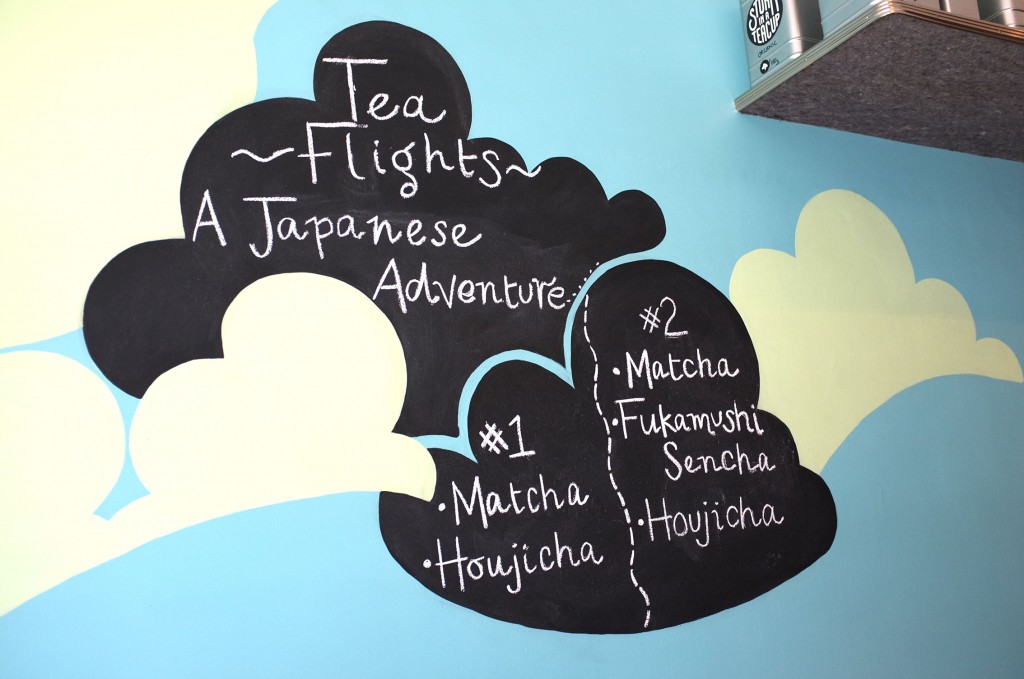 Tea
~Flights~
A Japanese
Adventure
#1
• Matcha
• Houjicha
#2
• Matcha
• Fukamushi
Sencha
• Houjicha
STORM
IN A
TEACUP
ORGANIC